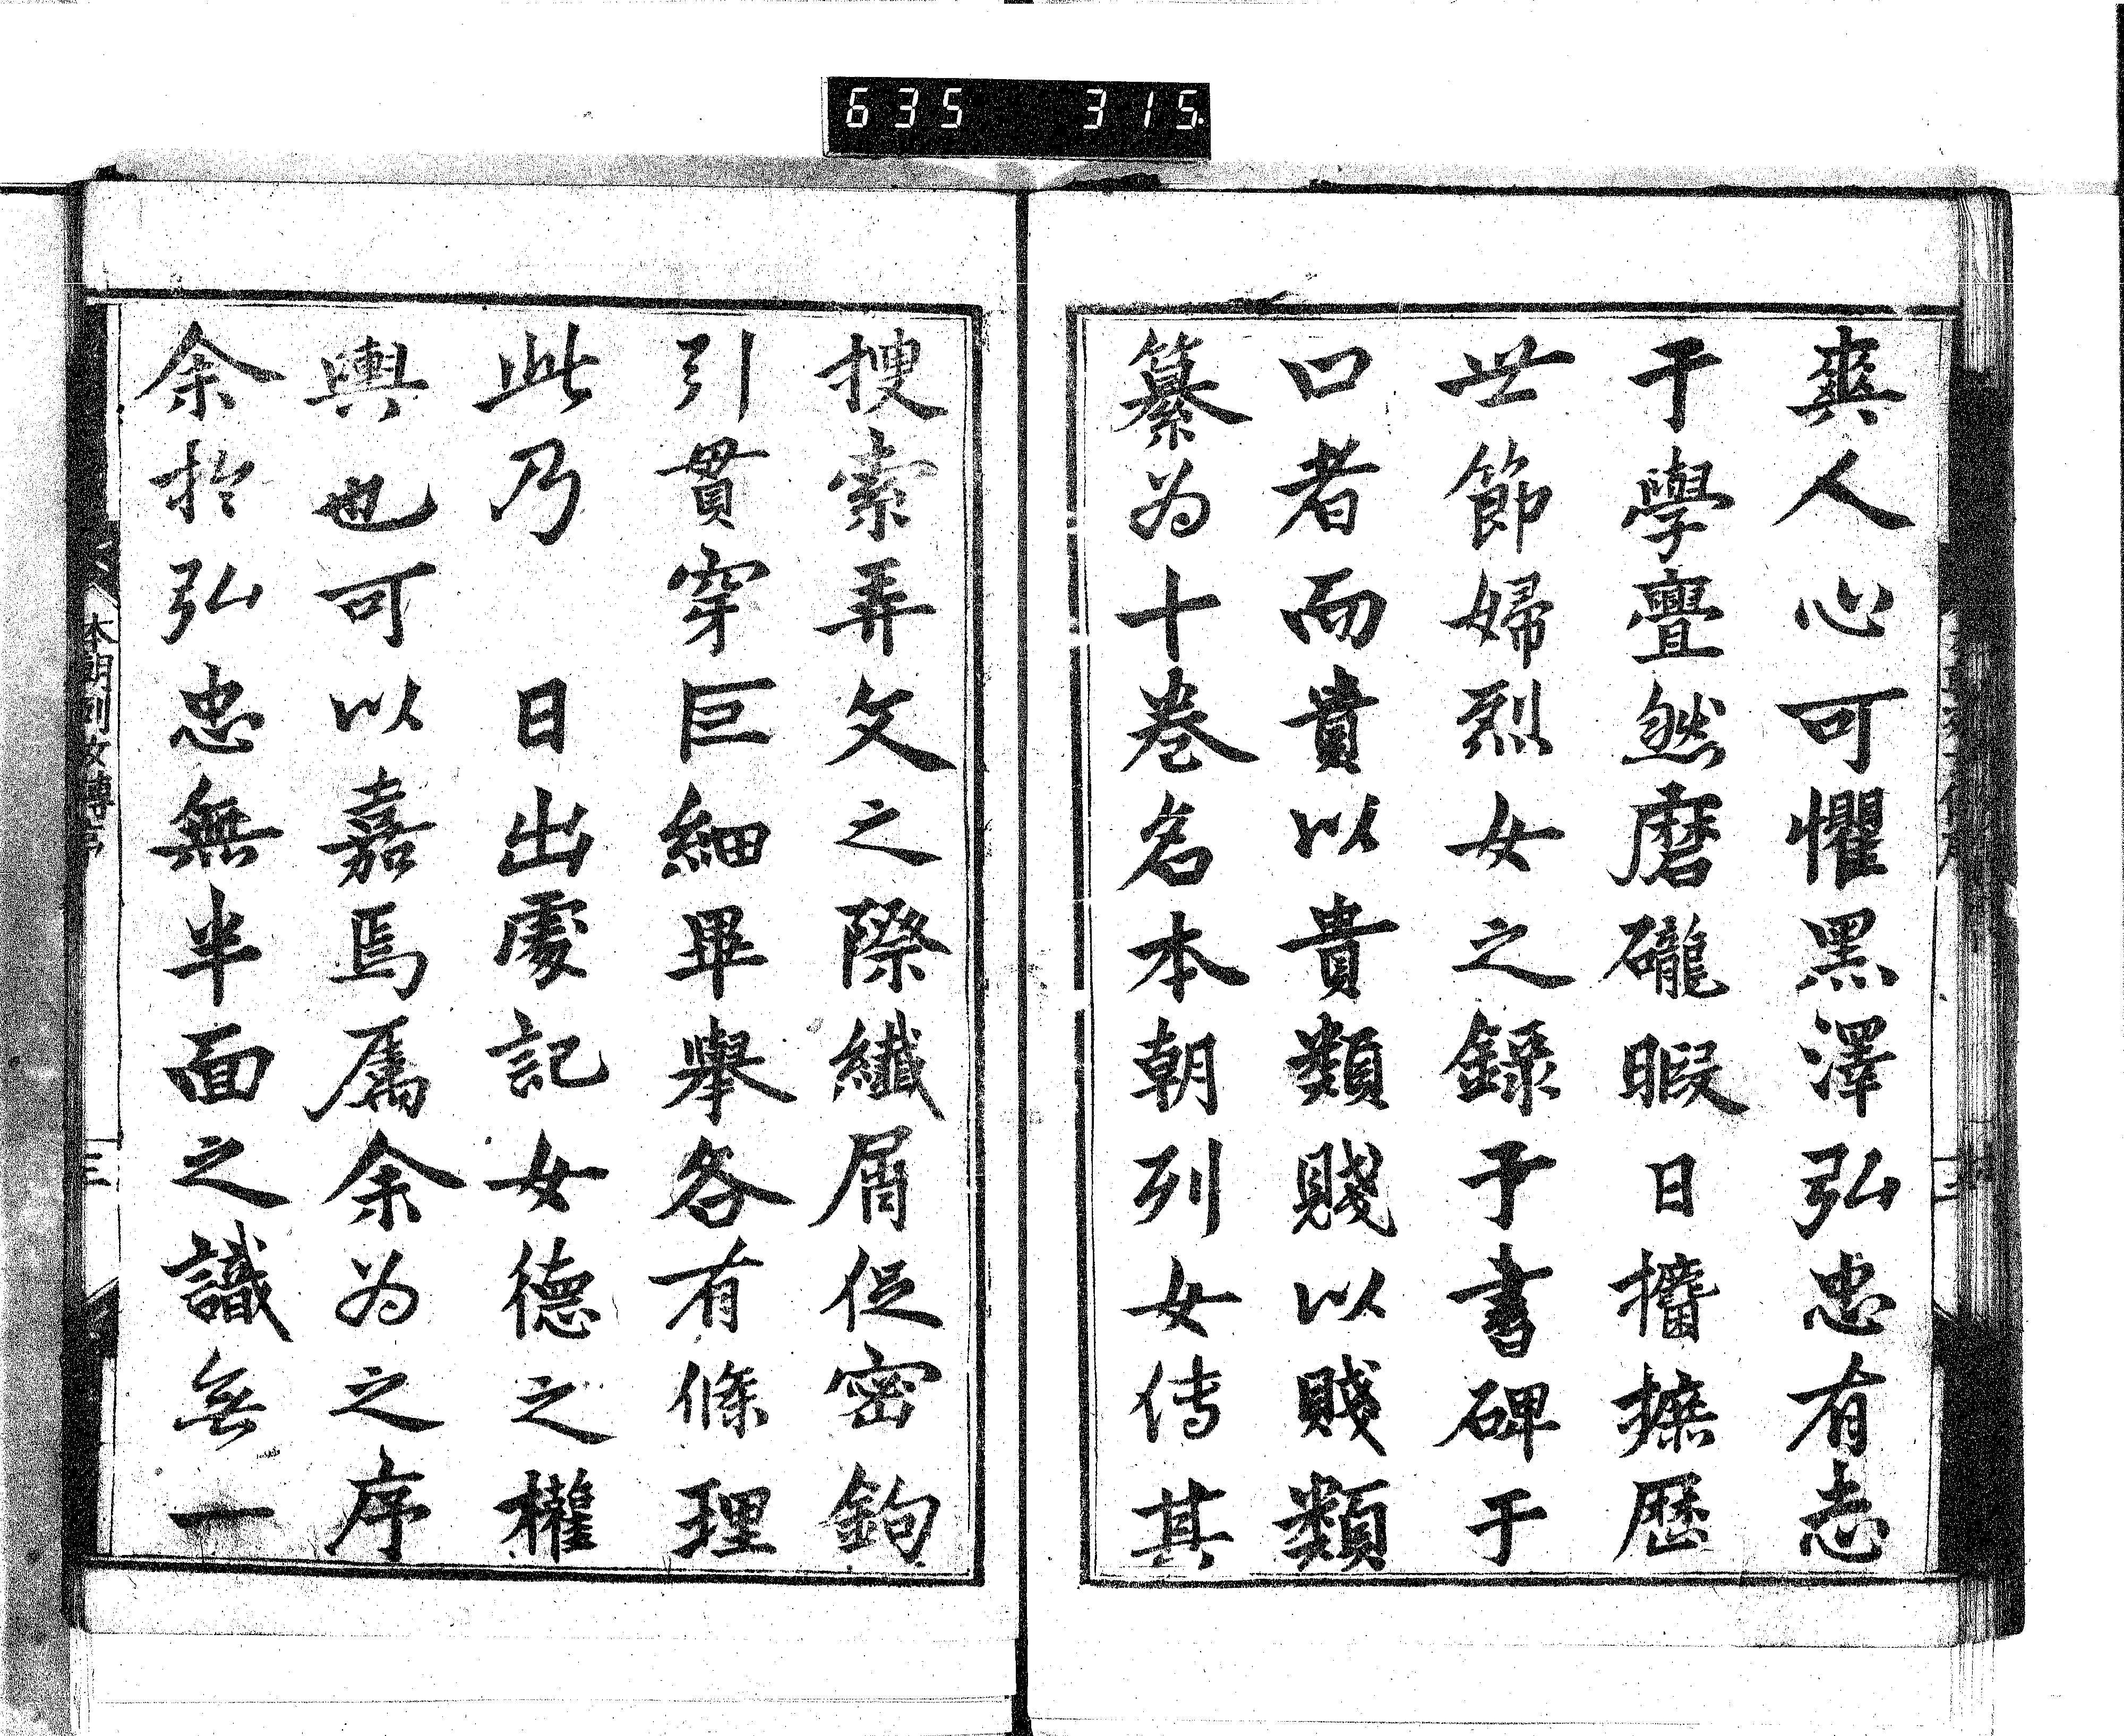 635 315
爽人心可懼黑澤弘忠有志
于學亹然磨礲暇日攟摭歷
世節婦烈女之錄予書碑于
口者而貴以貴類賤以賤類
纂为十卷名本朝列女傳其
搜索弄文之際纖屑促密鉤
引貫穿巨細畢舉各有條理
此乃 日出處記女德之權
輿也可以嘉焉属余为之序
余扵弘忠無半面之識無一
本朝列女傳序
三